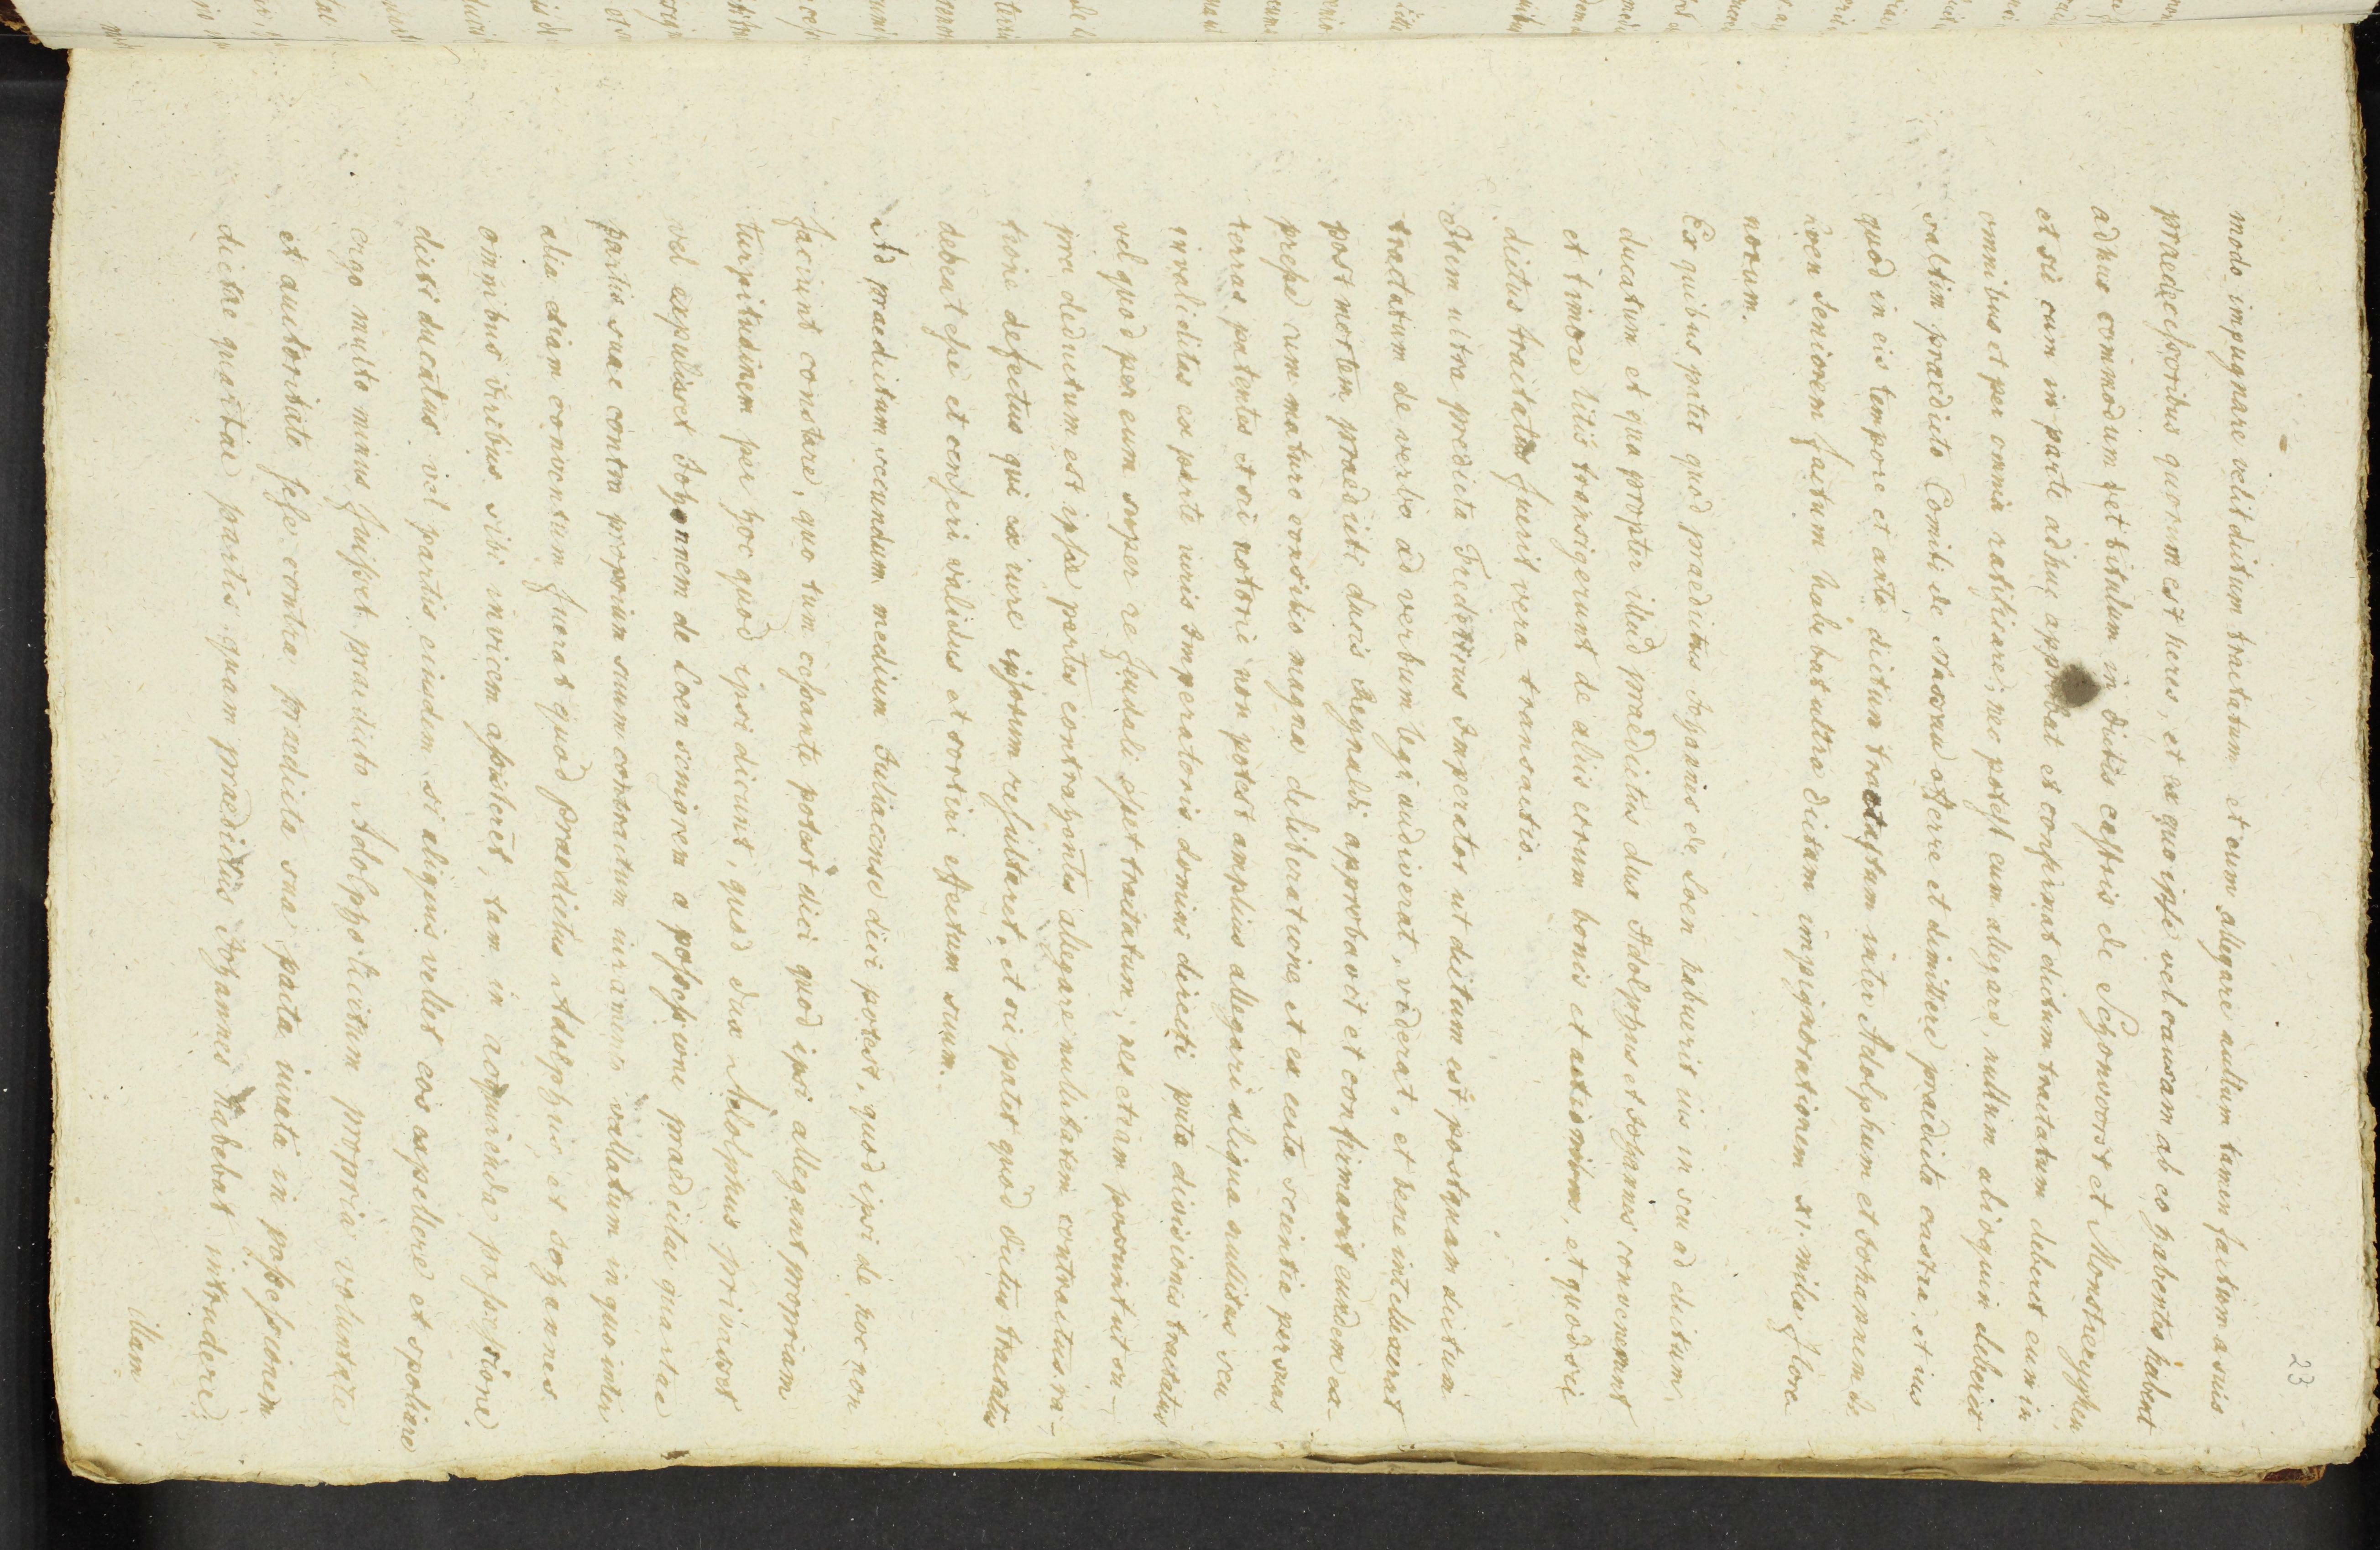 23
modo impugnare velit dictum tractatum et eum allegare nullum tamen factum a suis
praedecessoribus quorum est heres, et a quo ipse vel causam ab eo habentes habent
adhuc commodum et titulum in dictis castris de Schonvorst et Monstaryssen
et sic cum in parte adhuc approbat et confirmat dictum tractatum deberet eum in
omnibus et per omnia ratificare, nec potest eum allegare nullum alioquin deberet
saltim praedicto Comiti de Nassau offerre et dimittere praedicta castra, et ius
quod in eis tempore et ante dictum tractatum inter Adolphum et Johannem de
Loen seniorem factum habebat ultra dictam impignorationem xi. milia flore-
norum.
Ex quibus patet quod praedictus Johannes de Loen habuerit ius in seu ad dictum
ducatum et qua propter illud praedictus dux Adolphus et Johannes convenerunt
et timore litis transigerunt de aliis eorum bonis et actionibus, et quod sic
dictus tractatus fuerit vera transactio.
Item ultra predicta Fredericus Imperator ut dictum est postquam dictum
tractatum de verbo ad verbum legi audiverat, viderat, et bene intellexerat
post mortem praedicti ducis Reynaldi approbavit et confirmavit eundem ex-
presse cum maturo consilio magna deliberatione et ex certa scientia per suas
terras patentes et sic notorie non potest amplius allegari aliqua nullitas seu
invaliditas ex parte iuris Imperatoris domini directi puta divisionis tractatus
vel quod per eum super re feudali esset tractatum, nec etiam possunt ut su-
pra deductum est ipse partes contrahentes allegare nullitatem contractus ra-
tione defectus qui ex iure ipsorum resultaret, et sic patet quod dictus tractatus
debeat esse et censeri validus et sortiri effectum suum.
Ad praedictum secundum medium Juliacense dici potest, quod ipsi de hoc non
faciunt constare, quo tum cessante potest dici quod ipsi allegant propriam
turpitudinem per hoc quod ipsi dicunt, quod dux Adolphus privasset
vel expulisset Johannem de Loen seniorem a possessione praedictae quartae
partis suae contra proprium suum contractum iuramento vallatum in quo inter
alia etiam conventum fuerat quod praedictus Adolphus et Johannes
omnibus viribus sibi invicem assisterent, tam in acquirenda possessione
dicti ducatus vel partis eiusdem si aliquis vellet eos expellere et spoliare
ergo multo minus fuisset praedicto Adolpho licitum propria voluntate
et auctoritate sese contra praedicta sua pacta iurata in possessionem
dictae quartae partis quam praedictus Johannes habebat intrudere
illam